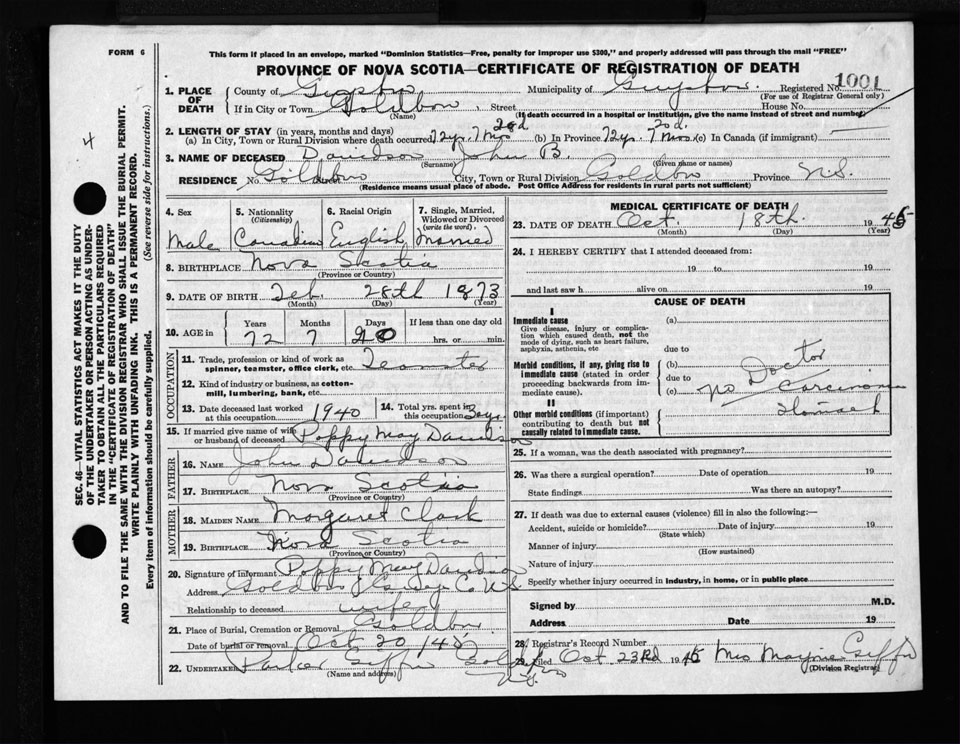 FORM 6
This form if placed in an envelope, marked "Dominion Statistics—Free, penalty for improper use $300," and properly addressed will pass through the mail "FREE"
PROVINCE OF NOVA SCOTIA—CERTIFICATE OF REGISTRATION OF DEATH
1. PLACE OF DEATH
County of Municipality of Guysboro. Registered No. 1001
(For use of Registrar General only)
If in City or Town Goldboro, Street House No.
(Name) (If death occurred in a hospital or institution, give the name instead of street and number)
2. LENGTH OF STAY (in years, months and days)
(a) In City, Town or Rural Division where death occurred 72 yr. 7 Mos 20d (b) In Province 72 yr. 7 Mos. 20d. (c) In Canada (if immigrant)
3. NAME OF DECEASED Davidson John B.
(Surname) (Given name or names)
RESIDENCE No. Goldboro Street City, Town or Rural Division Goldboro Province N.S.
(Residence means usual place of abode. Post Office Address for residents in rural parts not sufficient)
4. Sex
Male
5. Nationality
(Citizenship)
Canadian
6. Racial Origin
English
7. Single, Married, Widowed or Divorced
(write the word).
Married
8. BIRTHPLACE Nova Scotia
(Province or Country)
9. DATE OF BIRTH Feb. 28th 1873
(Month) (Day) (Year)
10. AGE in
Years Months Days If less than one day old
72 7 20 hrs. or min.
OCCUPATION
11. Trade, profession or kind of work as spinner, teamster, office clerk, etc. Teamster
12. Kind of industry or business, as cotton-mill, lumbering, bank, etc.
13. Date deceased last worked at this occupation 1940
14. Total yrs. spent in this occupation
15. If married give name of wife or husband of deceased Poppy May Davidson
FATHER
16. NAME John Davidson
17. BIRTHPLACE Nova Scotia
(Province or Country)
MOTHER
18. MAIDEN NAME Margaret Clark
19. BIRTHPLACE Nova Scotia
(Province or Country)
20. Signature of informant Poppy May Davidson
Address Goldboro Guy Co. N.S.
Relationship to deceased wife
21. Place of Burial, Cremation or Removal Goldboro
Date of burial or removal Oct 20/45
22. UNDERTAKER Parker Giffin Goldboro N.S.
(Name and address)
MEDICAL CERTIFICATE OF DEATH
23. DATE OF DEATH Oct. 18th. 1945
(Month) (Day) (Year)
24. I HEREBY CERTIFY that I attended deceased from:
19 to 19
and last saw h alive on 19
CAUSE OF DEATH
I
Immediate cause
Give disease, injury or complication which caused death, not the mode of dying, such as heart failure, asphyxia, asthenia, etc
(a)
due to
Morbid conditions, if any, giving rise to immediate cause (stated in order proceeding backwards from immediate cause).
(b)
due to
(c)
No Doctor
Carcinoma
Stomach
II
Other morbid conditions (if important) contributing to death but not causally related to immediate cause.
25. If a woman, was the death associated with pregnancy?
26. Was there a surgical operation? Date of operation 19
State findings Was there an autopsy?
27. If death was due to external causes (violence) fill in also the following:—
Accident, suicide or homicide? Date of injury 19
(State which)
Manner of injury
(How sustained)
Nature of injury
Specify whether injury occurred in industry, in home, or in public place
Signed by M.D.
Address Date 19
28. Registrar's Record Number
29. Filed Oct 23rd 1945 Mrs Giffin
(Division Registrar)
4
SEC. 46—VITAL STATISTICS ACT MAKES IT THE DUTY
OF THE UNDERTAKER OR PERSON ACTING AS UNDER-
TAKER TO OBTAIN ALL THE PARTICULARS REQUIRED
IN THE "CERTIFICATE OF REGISTRATION OF DEATH"
AND TO FILE THE SAME WITH THE DIVISION REGISTRAR WHO SHALL ISSUE THE BURIAL PERMIT.
WRITE PLAINLY WITH UNFADING INK. THIS IS A PERMANENT RECORD.
Every item of information should be carefully supplied. (See reverse side for instructions.)